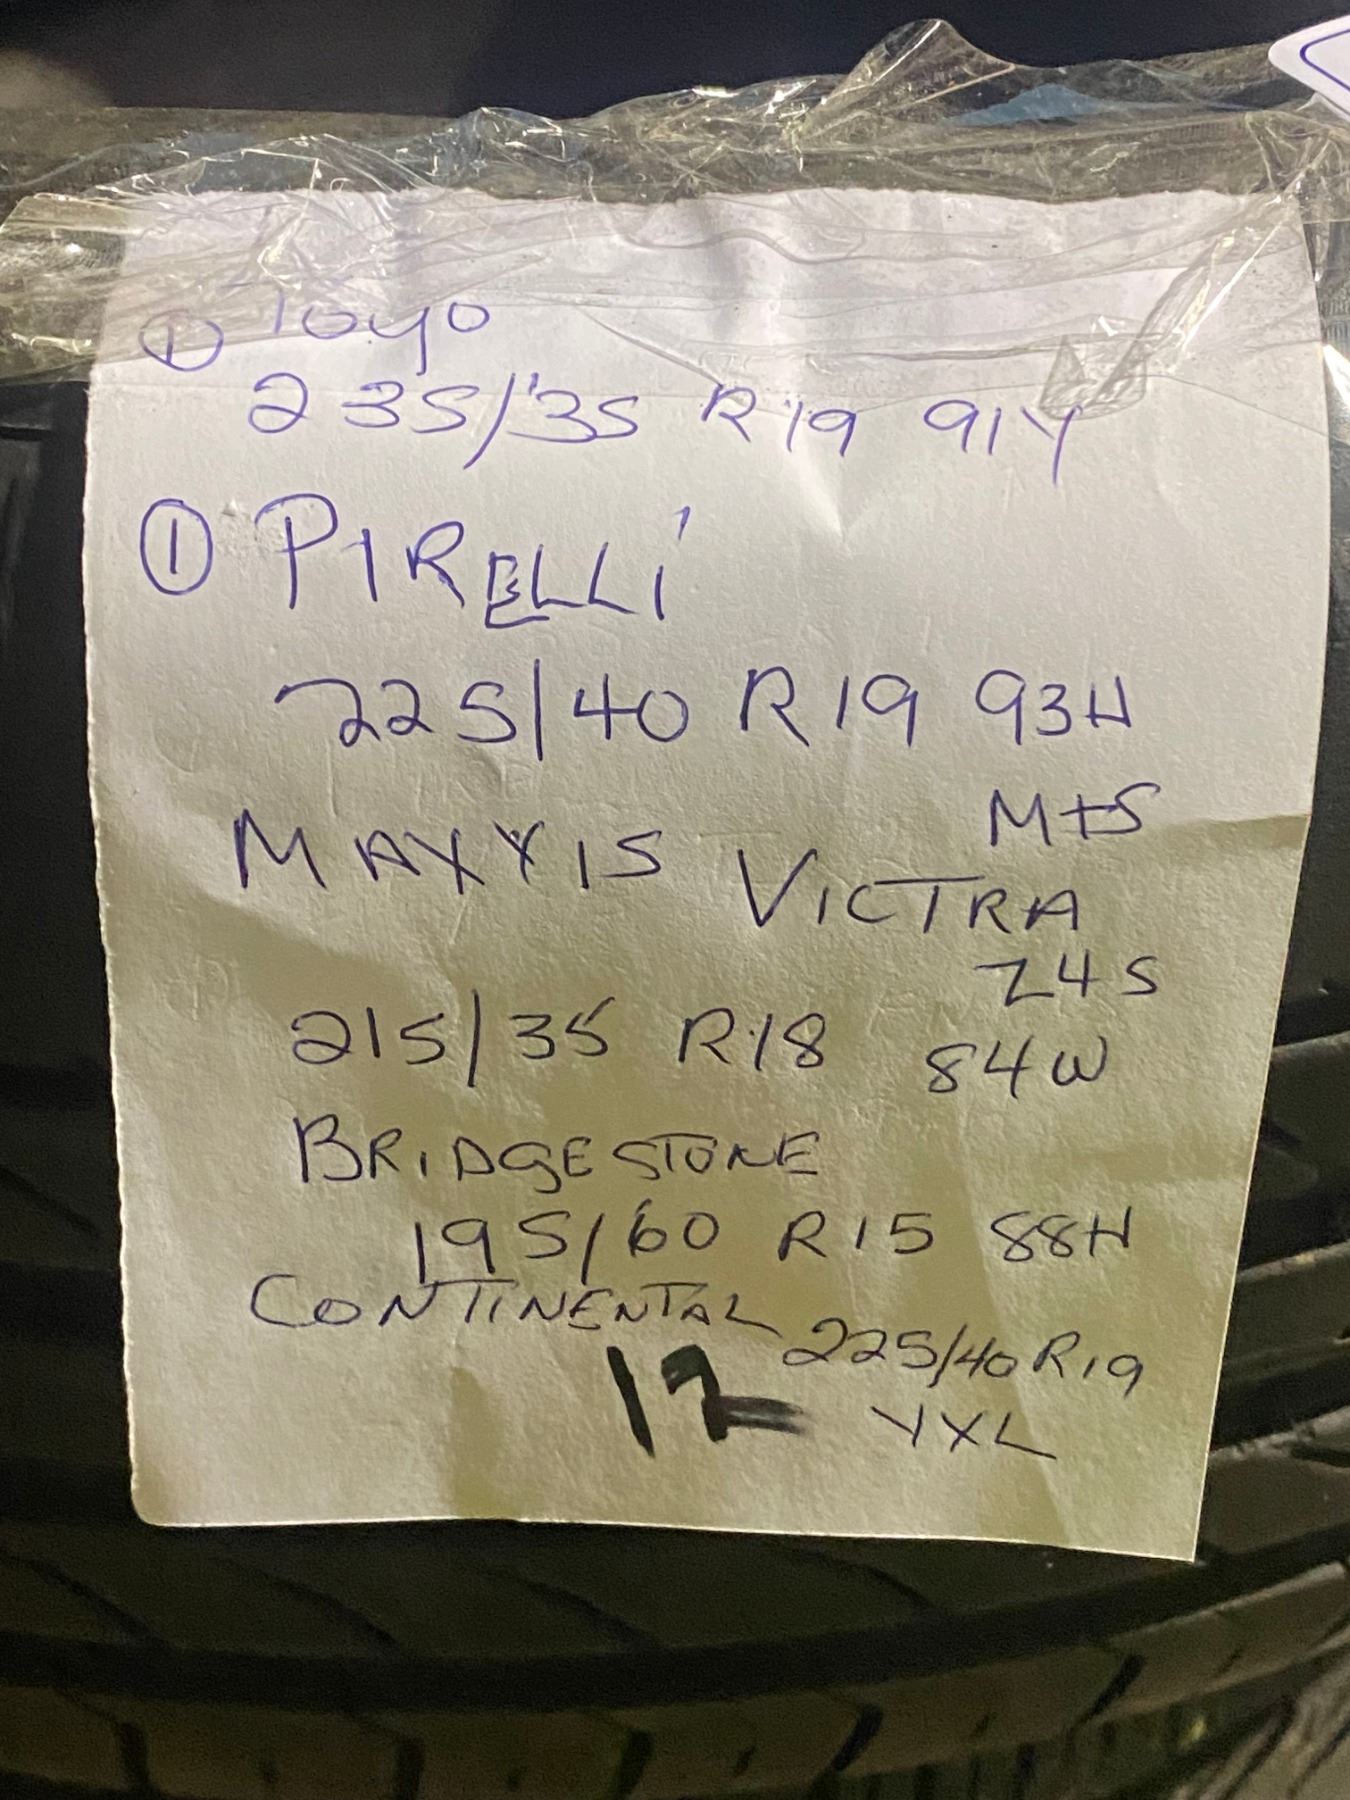 ① Toyo
235/35 R19 91Y
① PIRELLi
225/40 R19 93H
M+S
MAXXIS VICTRA
Z4S
215/35 R18 84W
BRIDGESTONE
195/60 R15 88H
CONTINENTAL 225/40 R19
YXL
12